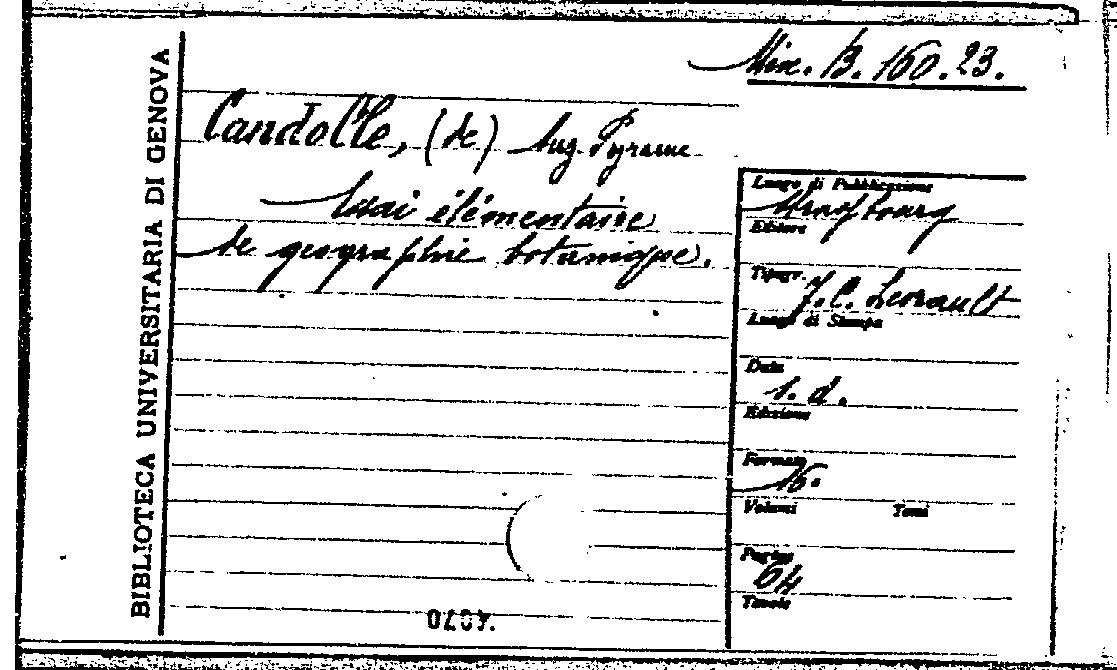 BIBLIOTECA UNIVERSITARIA DI GENOVA
Misc. B. 160.23.
Candolle, (de) Aug. Pyrame
Essai élémentaire
de geographie botanique.
Luogo di Pubblicazione
Strasbourg
Editore
Tipogr.
J. C. Levrault
Luogo di Stampa
Data
s. d.
Edizione
Formato
16.
Volumi Tomi
Pagine
64
Tavole